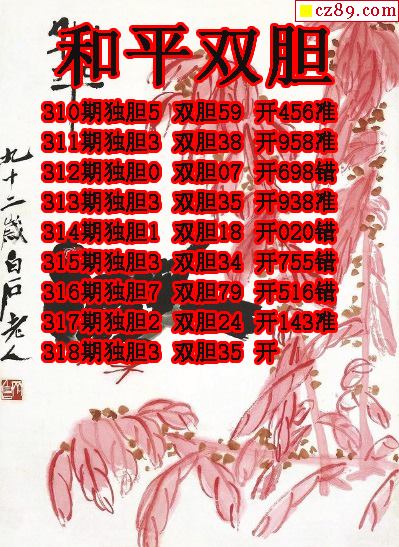 cz89.com
和平双胆
310期独胆5 双胆59 开456准
311期独胆3 双胆38 开958准
312期独胆0 双胆07 开698错
313期独胆3 双胆35 开938准
314期独胆1 双胆18 开020错
315期独胆3 双胆34 开755错
316期独胆7 双胆79 开516错
317期独胆2 双胆24 开143准
318期独胆3 双胆35 开
九十二岁白石老人